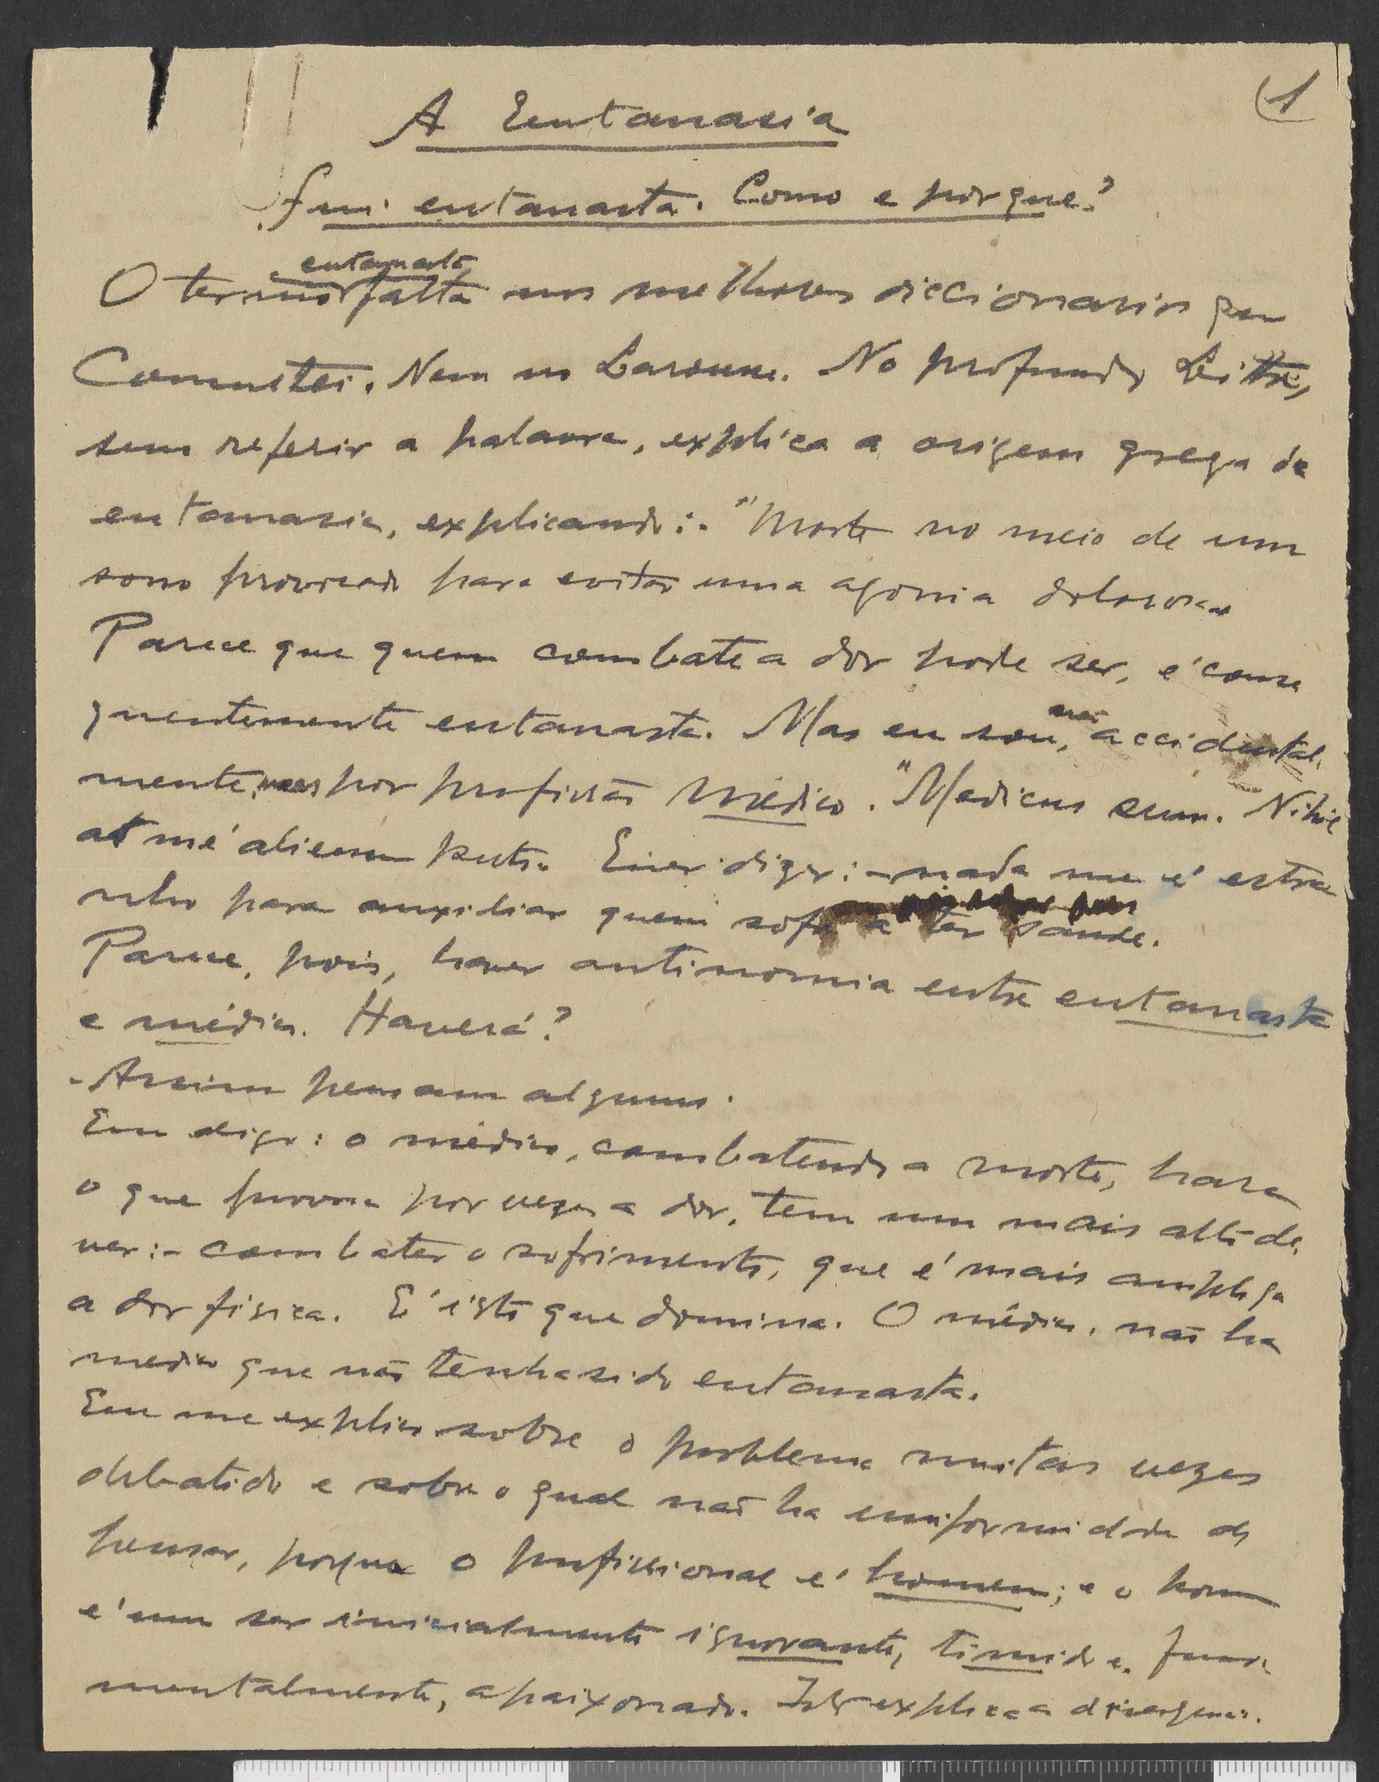 1
A Eutanasia
Fui eutanasta. Como e porque?
eutanasta
O termo falta nos melhores diccionarios que
Consultei. Nem no Larousse. No profundo Littré,
sem referir a palavra, explica a origem grega de
eutanasia, explicando:- "Morte no meio de um
sono provocado para evitar uma agonia dolorosa"
Parece que quem combate a dôr pode ser, é conse
quentemente eutanasta. Mas eu sou, não accidental-
mente, mas por profissão médico. "Medicus sum. Nihil
at me alienum puto. Quer dizer:- nada me é estra
nho para auxiliar quem sofre a ter saude.
Parece, pois, haver antinomia entre eutanasta
e médico. Haverá?
- Assim pensam alguns.
Eu digo: o médico, combatendo a morte, para
o que provoca por vezes a dor, tem um mais alto de
ver:- combater o sofrimento, que é mais amplo q.
a dor fisica. E' isto que domina. O médico, não ha
medico que não tenha sido eutanasta.
Eu me explico sobre o problema muitas vezes
debatido e sobre o qual não ha uniformidade de
pensar, porque o profissional é homem; e o hom
é um ser inicialmente ignorante, timido e, funda
mentalmente, apaixonado. Isto explica a divergencia.